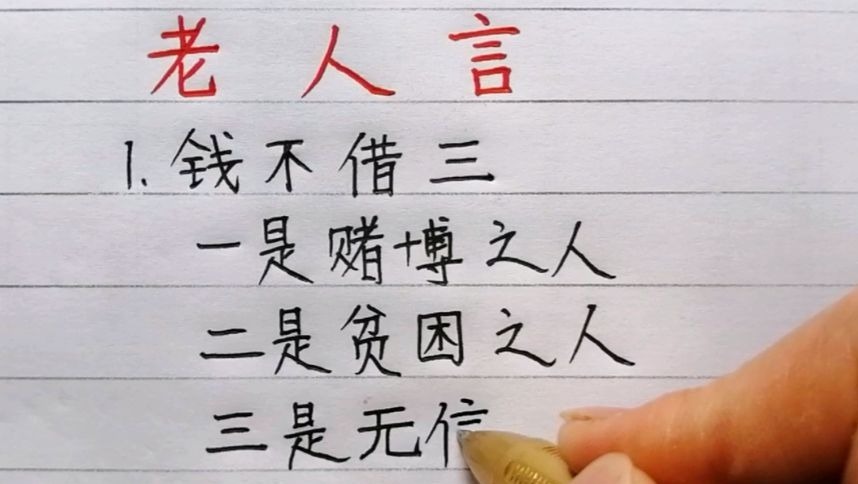 老人言
1.钱不借三
一是赌博之人
二是贫困之人
三是无信